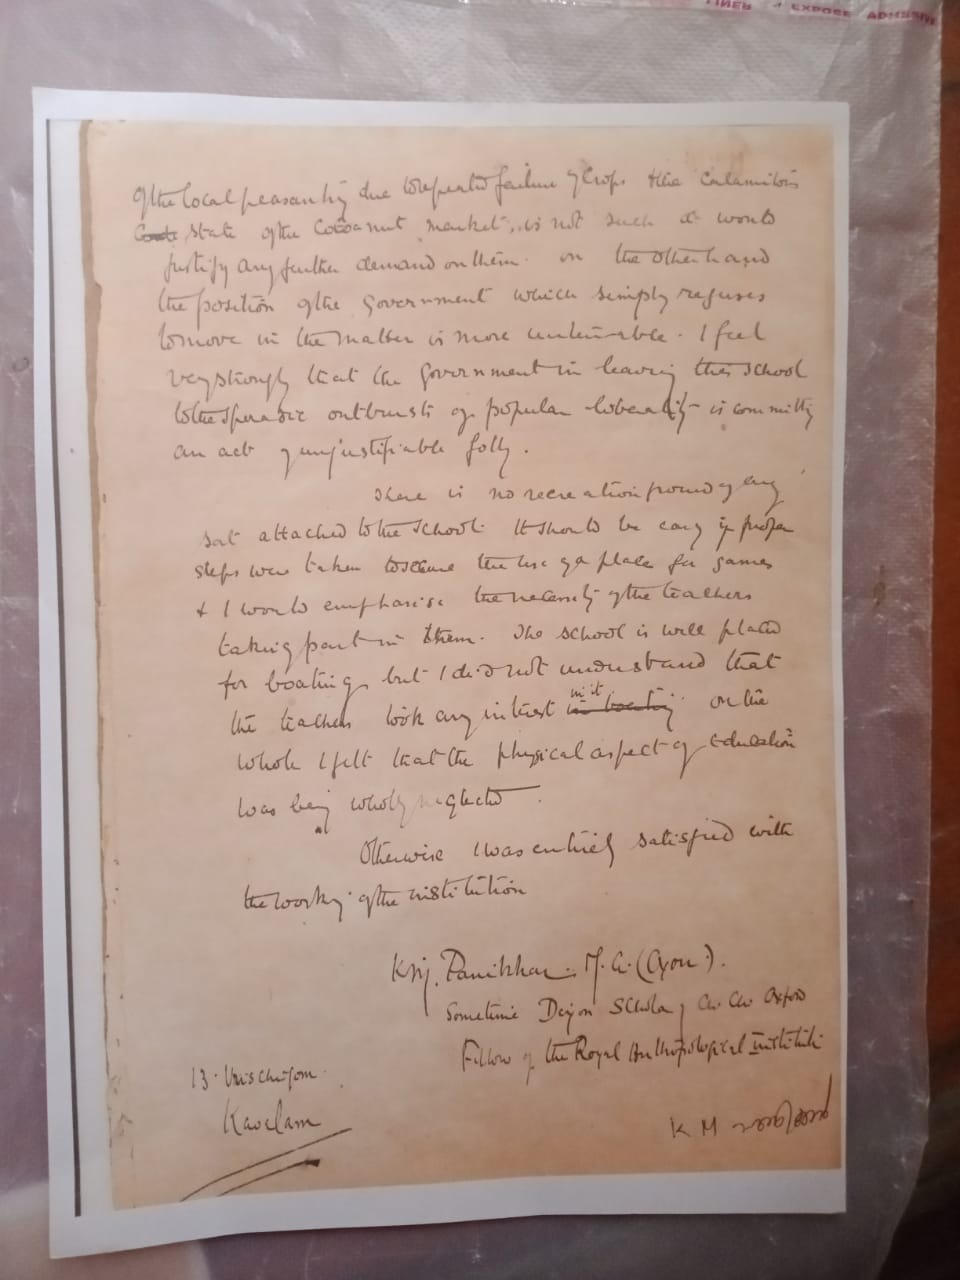 EXPOSE ADHESIVE
of the local peasantry due to repeated failure of crops & the calamitous
state of the Cocoanut market, is not such as would
justify any further demand on them. On the other hand
the position of the Government which simply refuses
to move in the matter is more untenable. I feel
very strongly that the Government in leaving this school
to the sporadic outbursts of popular liberality is committing
an act of unjustifiable folly.
There is no recreation ground of any
sort attached to the school. It should be easy if proper
steps were taken to secure the use of a place for games
& I would emphasise the necessity of the teachers
taking part in them. The school is well placed
for boating, but I did not understand that
the teachers took any interest in it in boating. On the
whole I felt that the physical aspect of Education
was being wholly neglected.
Otherwise I was entirely satisfied with
the working of the institution
K M Panikkar M.A. (Oxon).
Sometime Dixon Scholar Ch. Ch. Oxford
Fellow of the Royal Anthropological Institute
13. Vrischigom.
Kavalam
K M